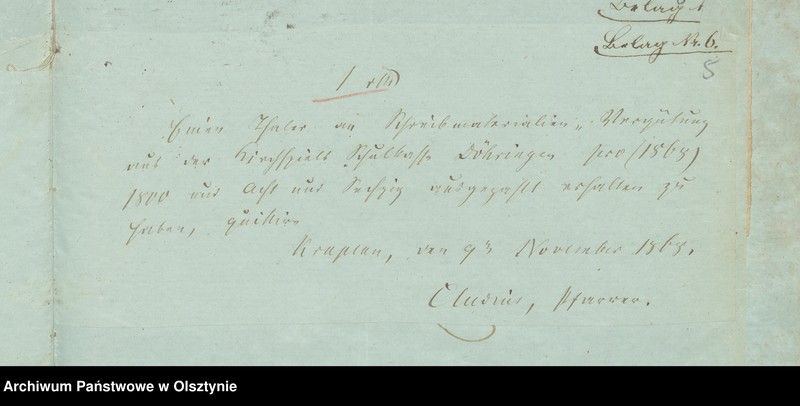 Belag
Belag Nr. 6.
5
1 rth
Einen Thaler an Schreibmaterialien-Vergütung
aus der Kirchspiels Schulkasse Döhringen pro (1868)
1800 und Acht und Sechzig ausgezahlt erhalten zu
haben, quittire
Kraplau, den 9t November 1868.
Claudius, Pfarrer.
Archiwum Państwowe w Olsztynie